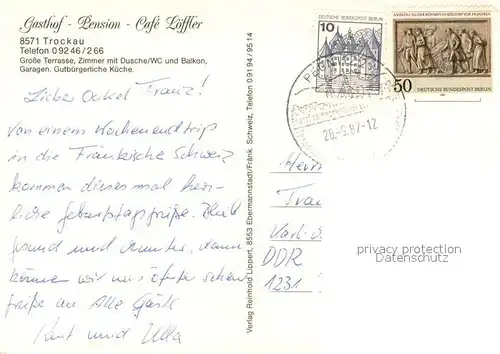 Gasthof - Pension - Café Löffler
8571 Trockau
Telefon 09246/266
Große Terrasse, Zimmer mit Dusche/WC und Balkon,
Garagen. Gutbürgerliche Küche.
Lieber Onkel Franz!
Von einem Wochenendtrip
in die Fränkische Schweiz
kommen dieses mal herz-
liche Geburtstagsgrüße. Bleib
gesund und munter, dann
können wir uns öfter sehen
Grüße an Alle
Kurt und Ulla
Verlag Reinhold Lippert, 8553 Ebermannstadt/Fränk. Schweiz, Telefon 09194/9514
10
DEUTSCHE BUNDESPOST BERLIN
50
DEUTSCHE BUNDESPOST BERLIN
28.-9.87-12
Herrn
DDR
1231
privacy protection
Datenschutz